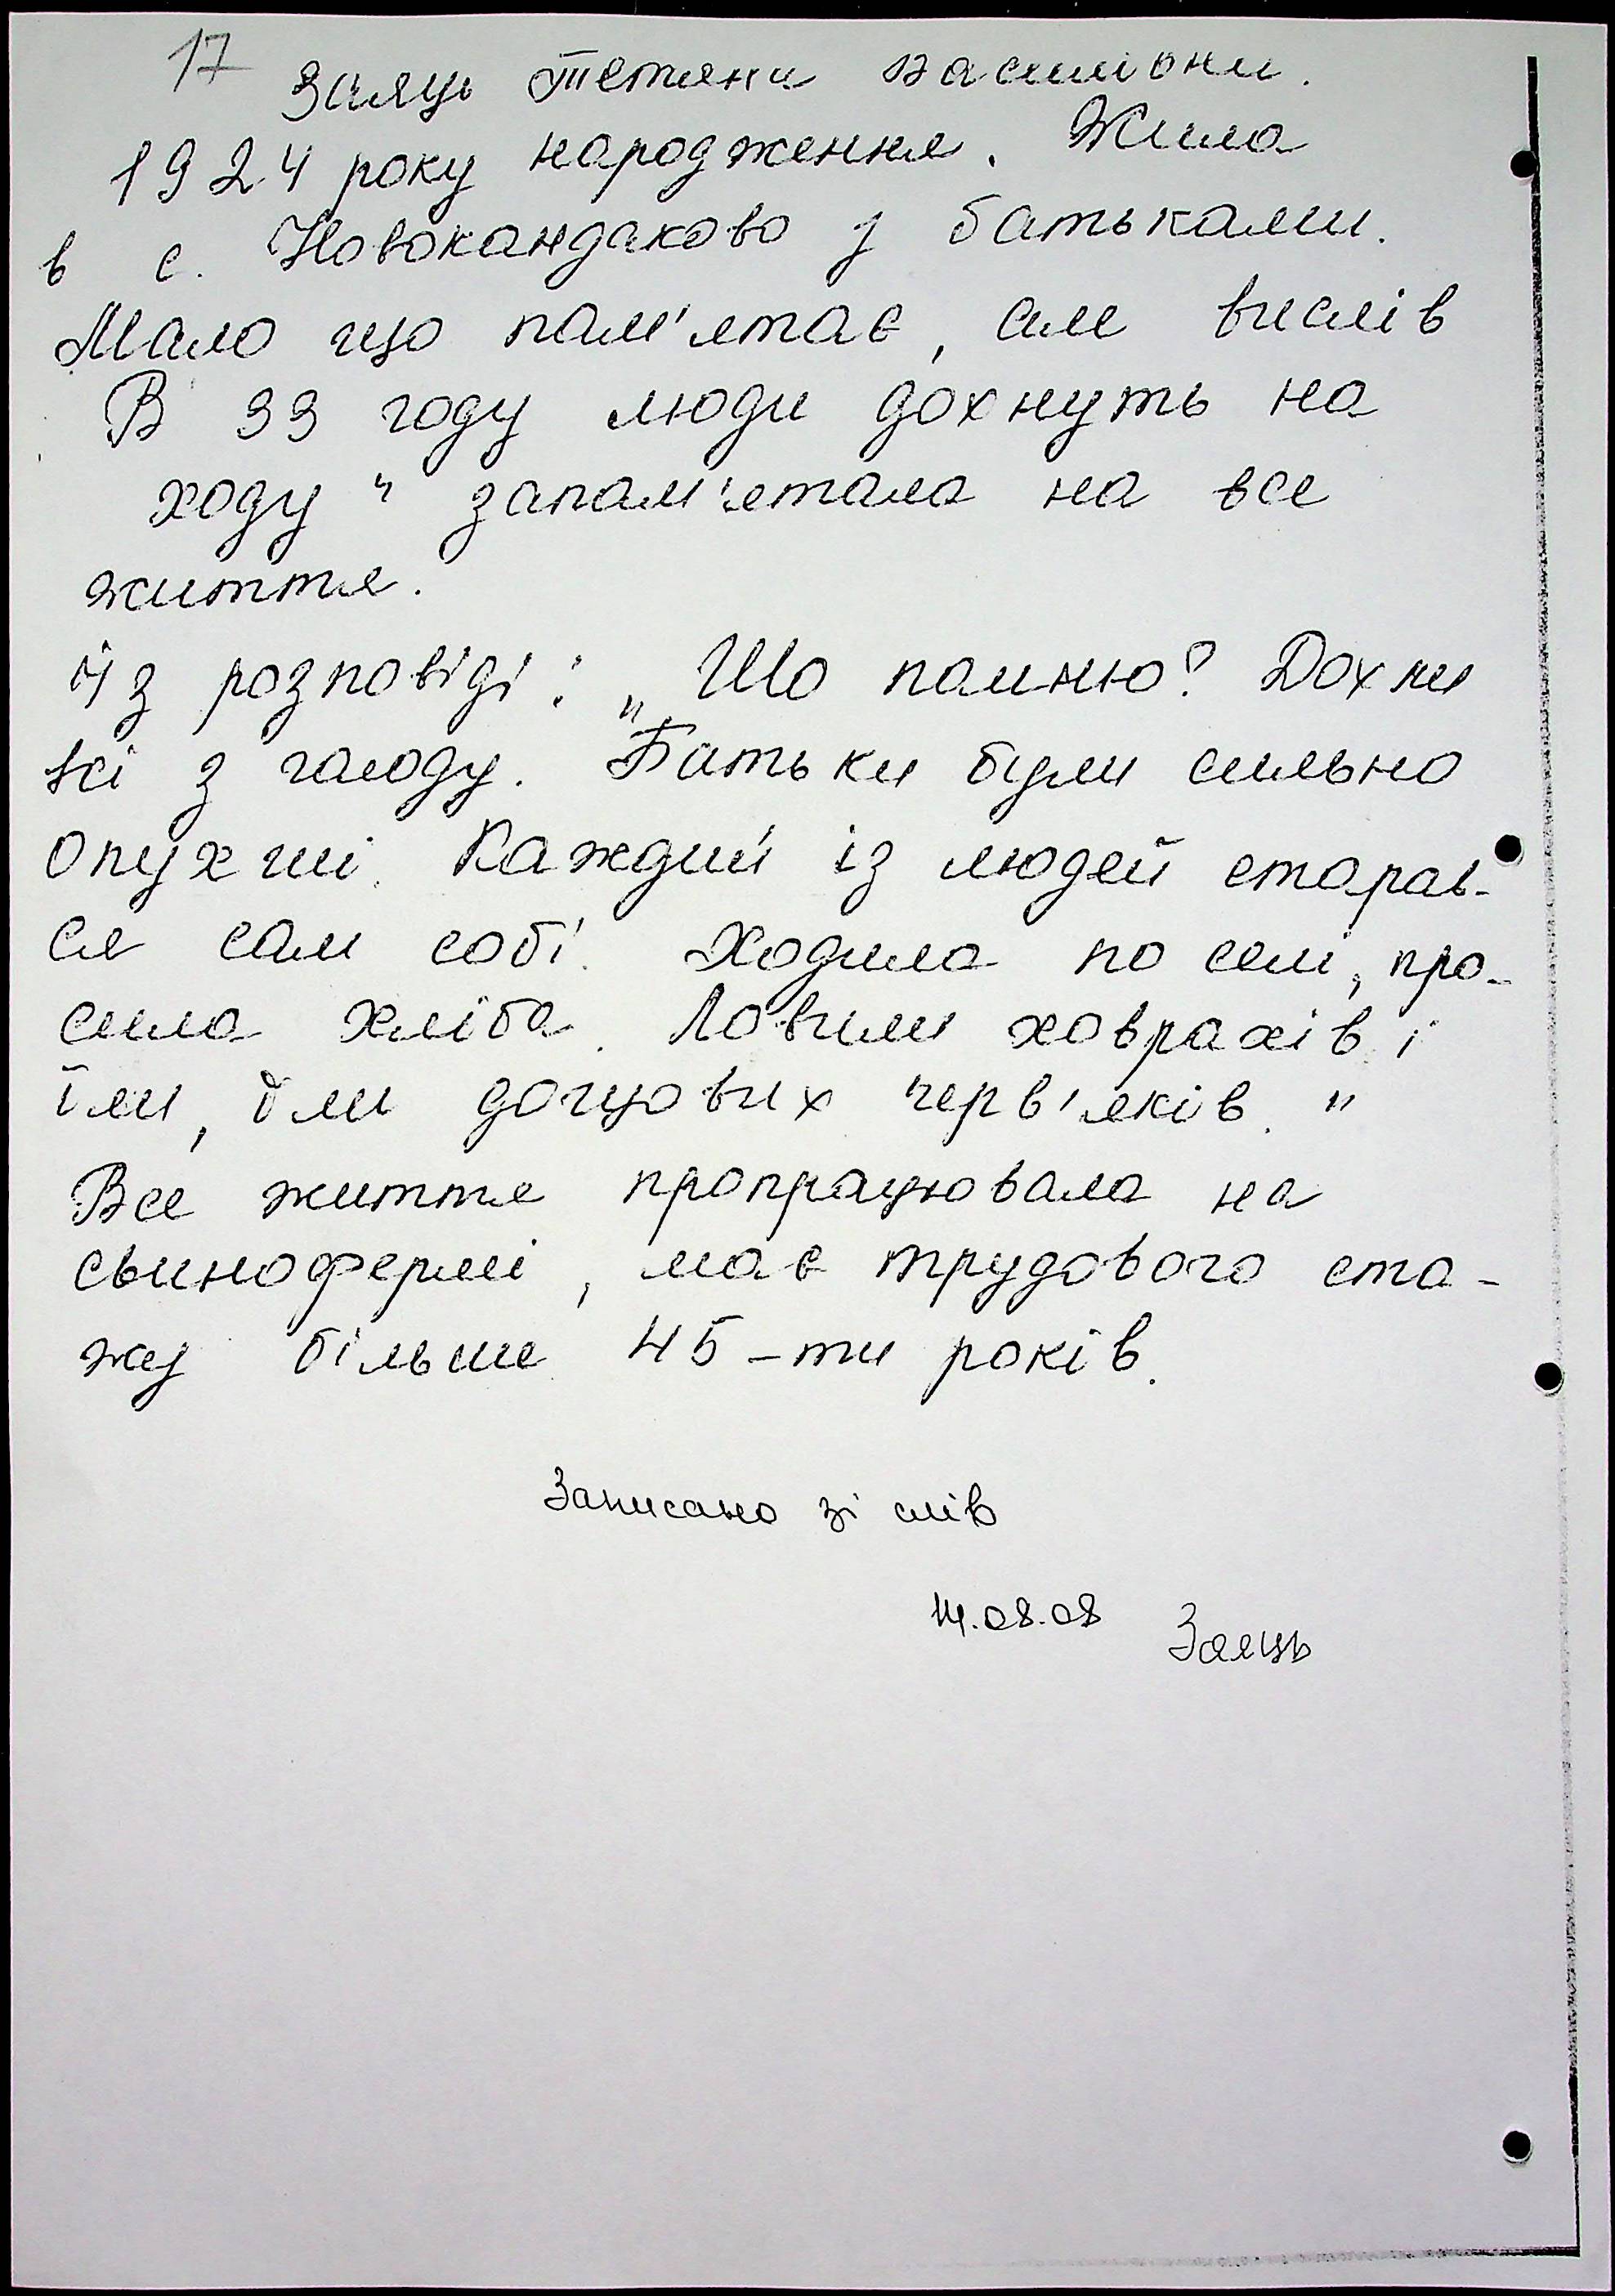 17
Заяць Тетяни Василівни.
1924 року народження. Жила
в с. Новокандаково з батьками.
Мало що пам'ятає, але вислів
В 33 году люди дохнуть на
ходу" запам'ятала на все
життя.
Із розповіді: „Шо помню? Дохли
всі з голоду. Батьки були сильно
опухші. Каждий із людей старав-
ся сам собі. Ходила по селі, про-
сила хліба. Ловили ховрахів і
їли, їли дощових черв'яків."
Все життя пропрацювала на
свинофермі, має трудового ста-
жу більше 45-ти років.
Записано зі слів
14.08.08 Заяць